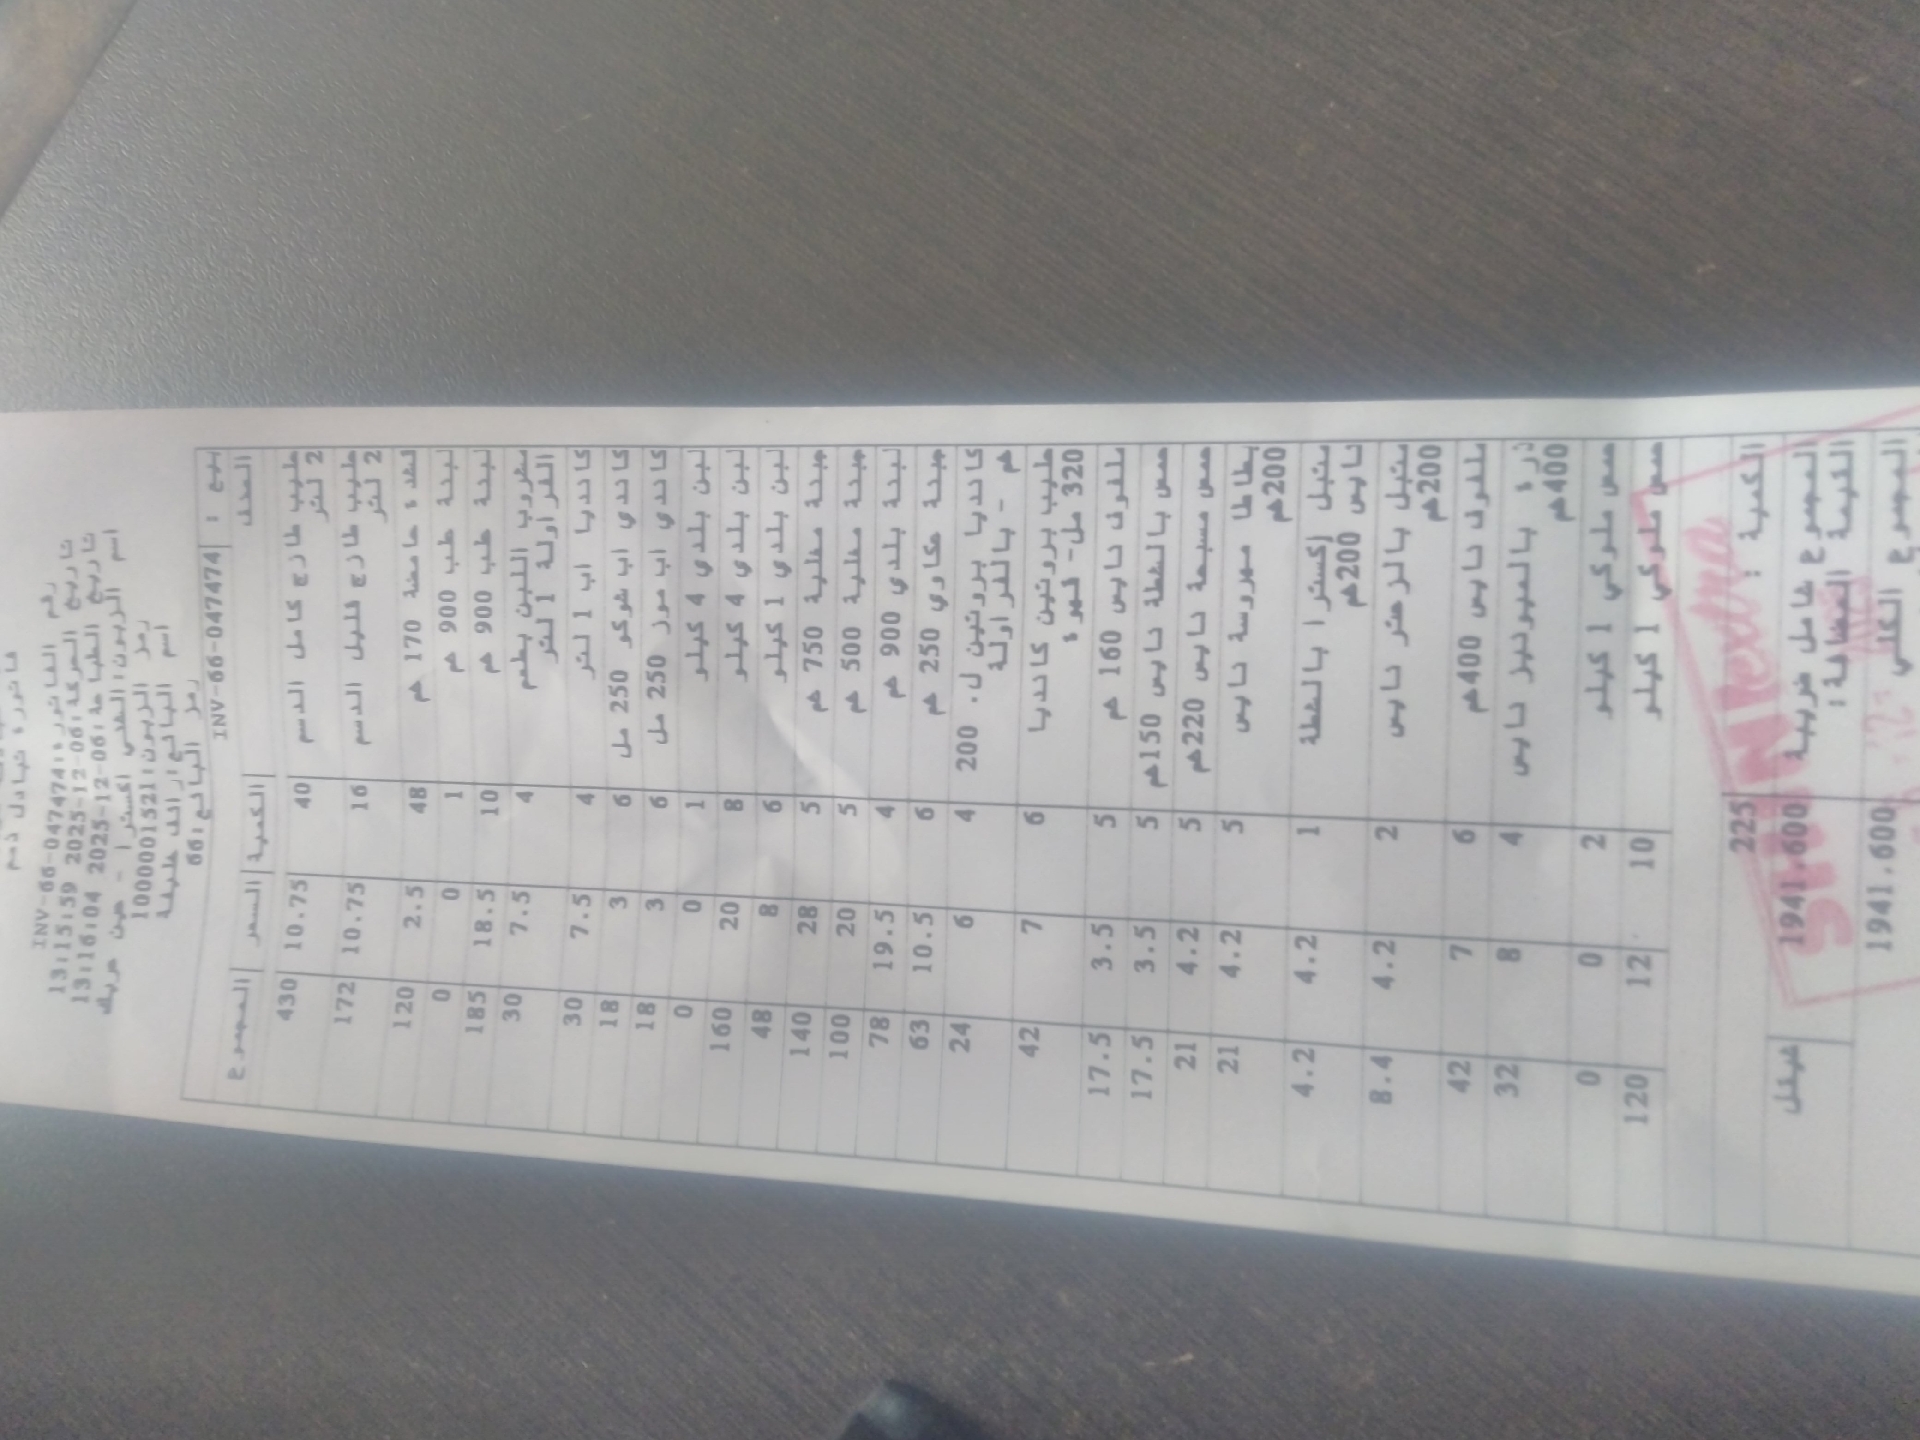 فاتورة تبادل ذمم
رقم الفاتورة: INV-66-047474
تاريخ الحركة: 2025-12-06 13:15:59
تاريخ الطباعة: 2025-12-06 13:16:04
اسم الزبون: القدس اكسترا -
رمز الزبون: 1000001521
اسم البائع: خليفة
رمز البائع: 66
بيع : INV-66-047474
الصنف الكمية السعر المجموع
حليب طازج كامل الدسم 40 10.75 430
2 لتر
حليب طازج قليل الدسم 16 10.75 172
2 لتر
قشدة حامضة 170 غم 48 2.5 120
لبنة علب 900 غم 1 0 0
لبنة علب 900 غم 10 18.5 185
مشروب اللبن بطعم 4 7.5 30
الفراولة 1 لتر
كانديا اب 1 لتر 4 7.5 30
كاندي اب شوكو 250 مل 6 3 18
كاندي اب موز 250 مل 6 3 18
لبن بلدي 4 كيلو 1 0 0
لبن بلدي 4 كيلو 8 20 160
لبن بلدي 1 كيلو 6 8 48
جبنة مغلية 750 غم 5 28 140
جبنة مغلية 500 غم 5 20 100
لبنة بلدي 900 غم 4 19.5 78
جبنة عكاوي 250 غم 6 10.5 63
كانديا بروتين ل. 200 4 6 24
غم - بالفراولة
حليب بروتين كانديا 6 7 42
320 مل- قهوة
ملفوف نايس 160 غم 5 3.5 17.5
حمص بالشطة نايس 150غم 5 3.5 17.5
حمص مسبحة نايس 220غم 5 4.2 21
بطاطا مهروسة نايس 5 4.2 21
200غم
متبل إكسترا بالشطة 1 4.2 4.2
نايس 200غم
متبل بالزعتر نايس 2 4.2 8.4
200غم
ملفوف نايس 400غم 6 7 42
ذرة بالميونيز نايس 4 8 32
400غم
حمص ملوكي 1 كيلو 2 0 0
حمص ملوكي 1 كيلو 10 12 120
الكمية : 225
المجموع شامل ضريبة 1941.600 شيكل
القيمة المضافة:
المجموع الكلي 1941.600
extra